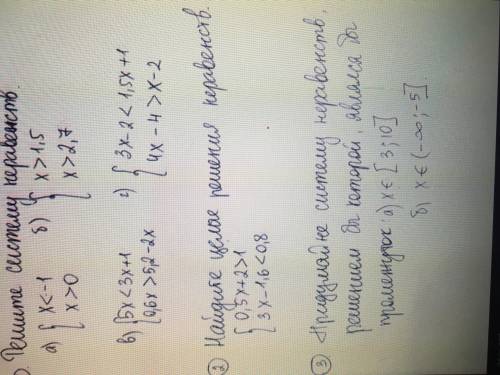 Решите систему неравенств.
а) { x<-1 б) { x>1,5
x>0 x>2,7
в) { 5x<3x+1 г) { 3x-2<1,5x+1
0,6x>5,2-2x 4x-4>x-2
② Найдите целое решения неравенств.
{ 0,5x+2>1
3x-1,6<0,8
③ Придумайте систему неравенств,
решением бы которой, являлся бы
промежуток: а) x∈[3;10]
б) x∈(-∞;-5]